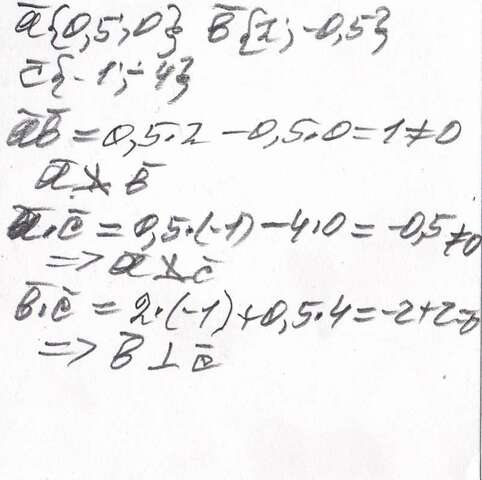 a̅{0,5; 0} b̅{2; -0,5}
c̅{-1; -4}
a̅b̅ = 0,5·2 - 0,5·0 = 1 ≠ 0
a̅ ⊥̸ b̅
a̅·c̅ = 0,5·(-1) - 4·0 = -0,5 ≠ 0
=> a̅ ⊥̸ c̅
b̅·c̅ = 2·(-1) + 0,5·4 = -2 + 2 = 0
=> b̅ ⊥ c̅